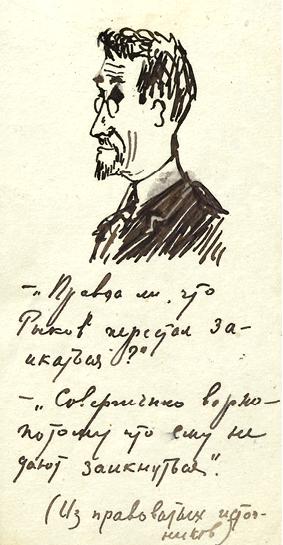 – „Правда ли, что
Рыков перестал за-
икаться?"
– „Совершенно верно –
потому что ему не
дают заикнуться".
(Из правоватых источ-
ников)